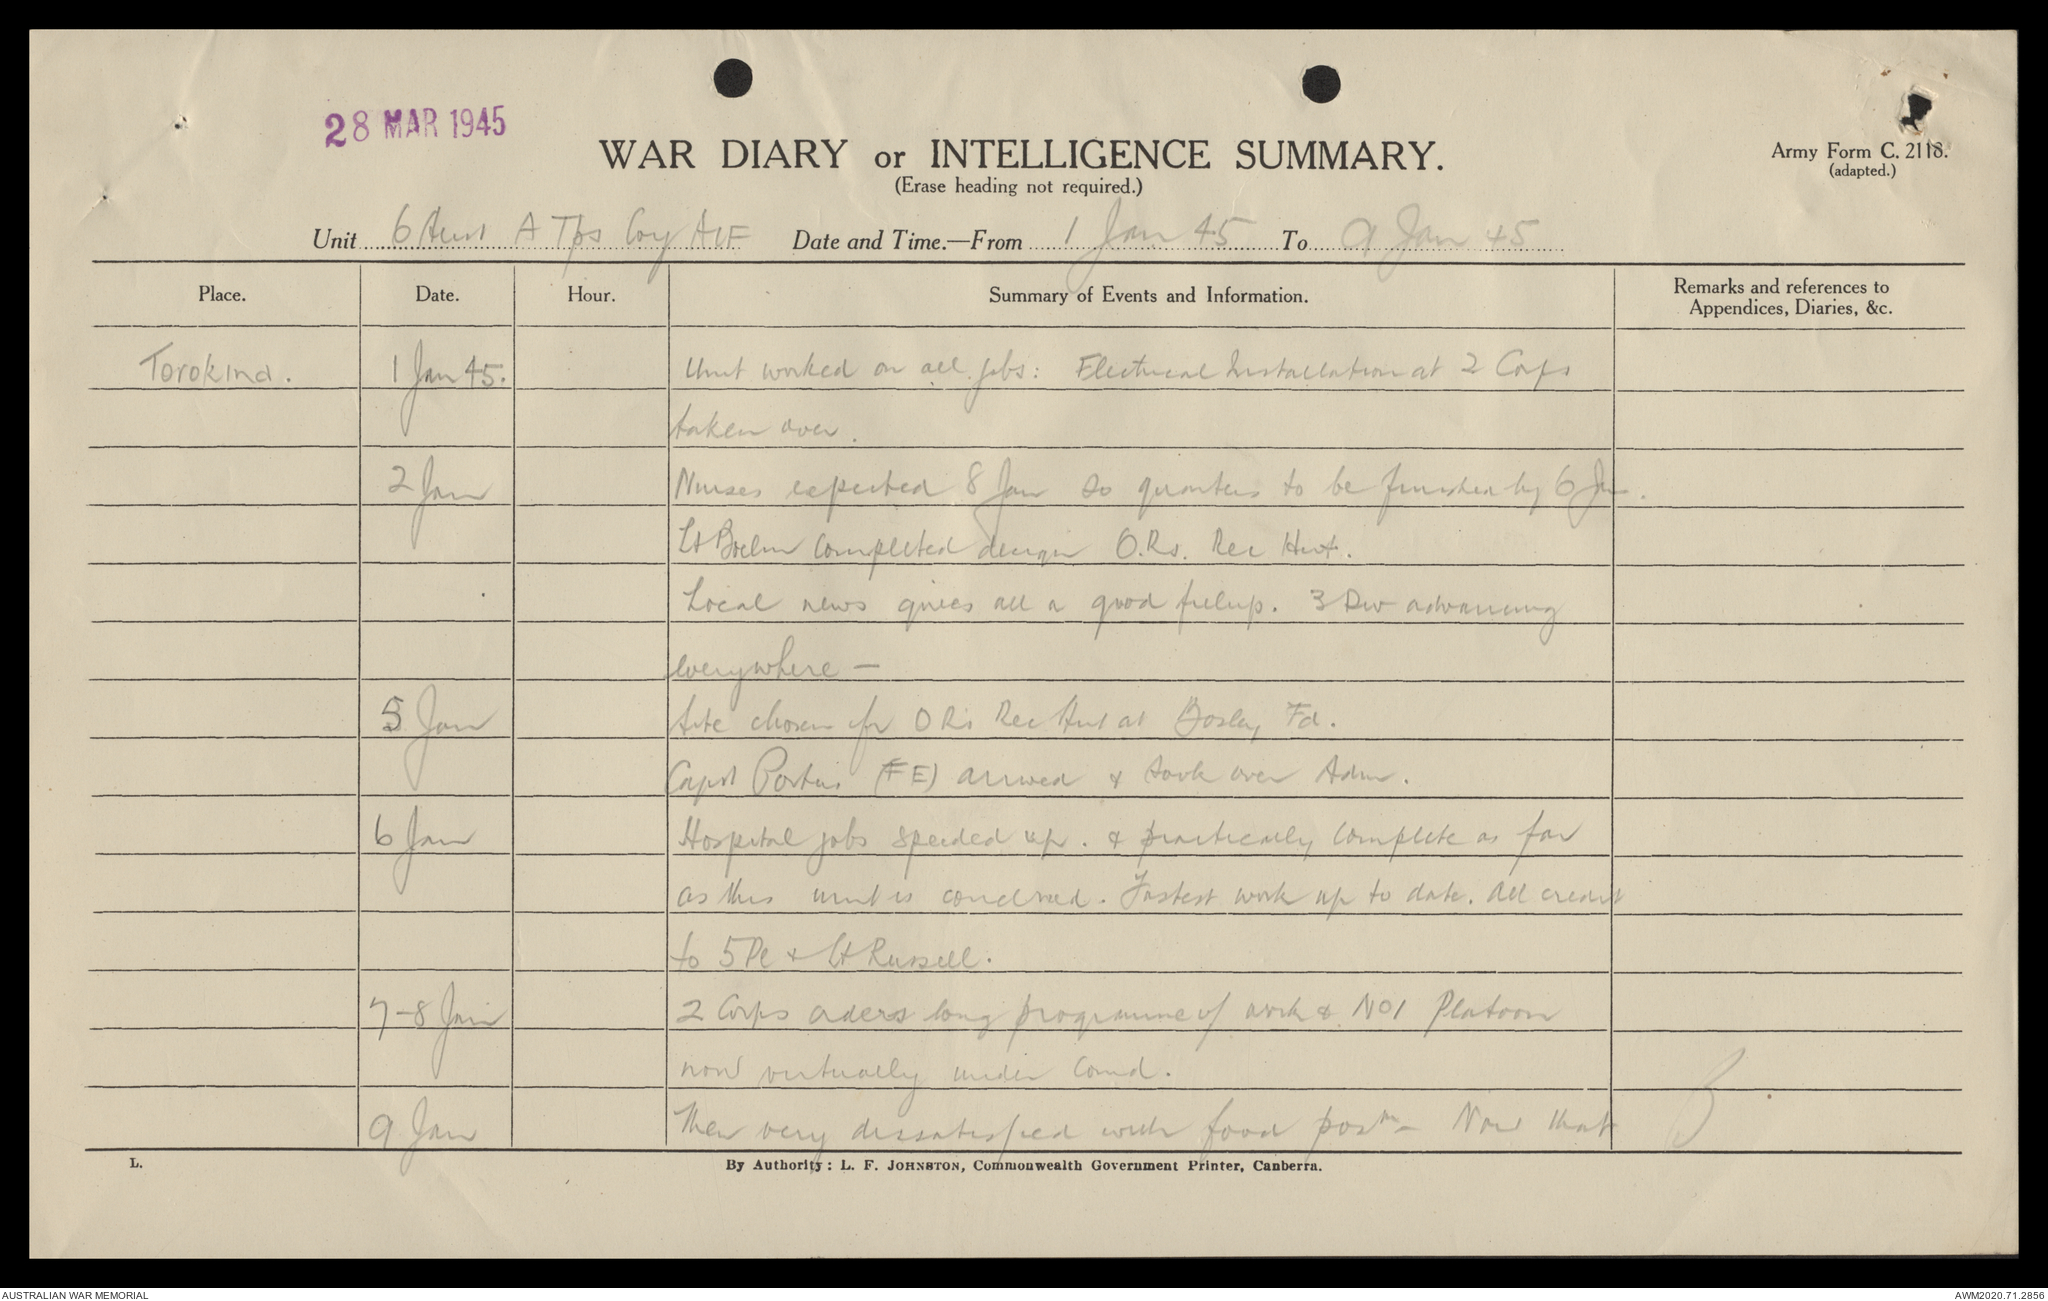 28 MAR 1945
WAR DIARY or INTELLIGENCE SUMMARY.
(Erase heading not required.)
Army Form C. 2118.
(adapted.)
Unit 6 Aust A Tps Coy AIF Date and Time.—From 1 Jan 45 To 9 Jan 45
Place. Date. Hour. Summary of Events and Information. Remarks and references to Appendices, Diaries, &c.
Torokina. 1 Jan 45. Unit worked on all jobs: Electrical Installation at 2 Corps
taken over.
2 Jan Nurses expected 8 Jan so quarters to be finished by 6 Jan.
Lt Boehm completed design O.Rs. Rec Hut.
Local news gives all a good fillup. 3 Div advancing
everywhere —
5 Jan Site chosen for ORs Rec Hut at Bosley Fd.
Capt Porter (FE) arrived & took over Adm.
6 Jan Hospital jobs speeded up. & practically complete as far
as this unit is concerned. Fastest work up to date. All credit
to 5 Pl & Lt Russell.
7-8 Jan 2 Corps orders long programme of work & NO1 Platoon
now virtually under Comd.
9 Jan Men very dissatisfied with food posn – Now that
L.
By Authority: L. F. JOHNSTON, Commonwealth Government Printer, Canberra.
AUSTRALIAN WAR MEMORIAL
AWM2020.71.2856